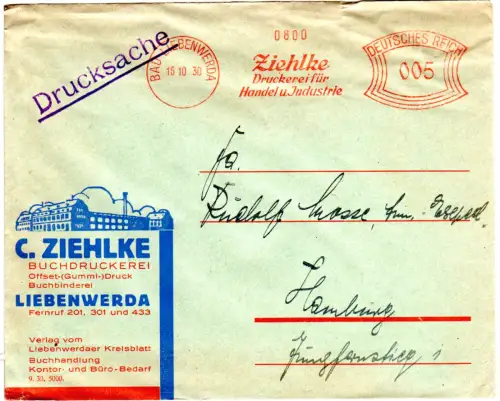 Drucksache
BAD LIEBENWERDA
15.10.30
0800
Ziehlke
Druckerei für
Handel u. Industrie
DEUTSCHES REICH
005
Fa.
Rudolf Mosse,
Hamburg
Jungfernstieg 1
C. ZIEHLKE
BUCHDRUCKEREI
Offset-(Gummi-)Druck
Buchbinderei
LIEBENWERDA
Fernruf 201, 301 und 433
Verlag vom
Liebenwerdaer Kreisblatt
Buchhandlung
Kontor- und Büro-Bedarf
9. 30. 5000.